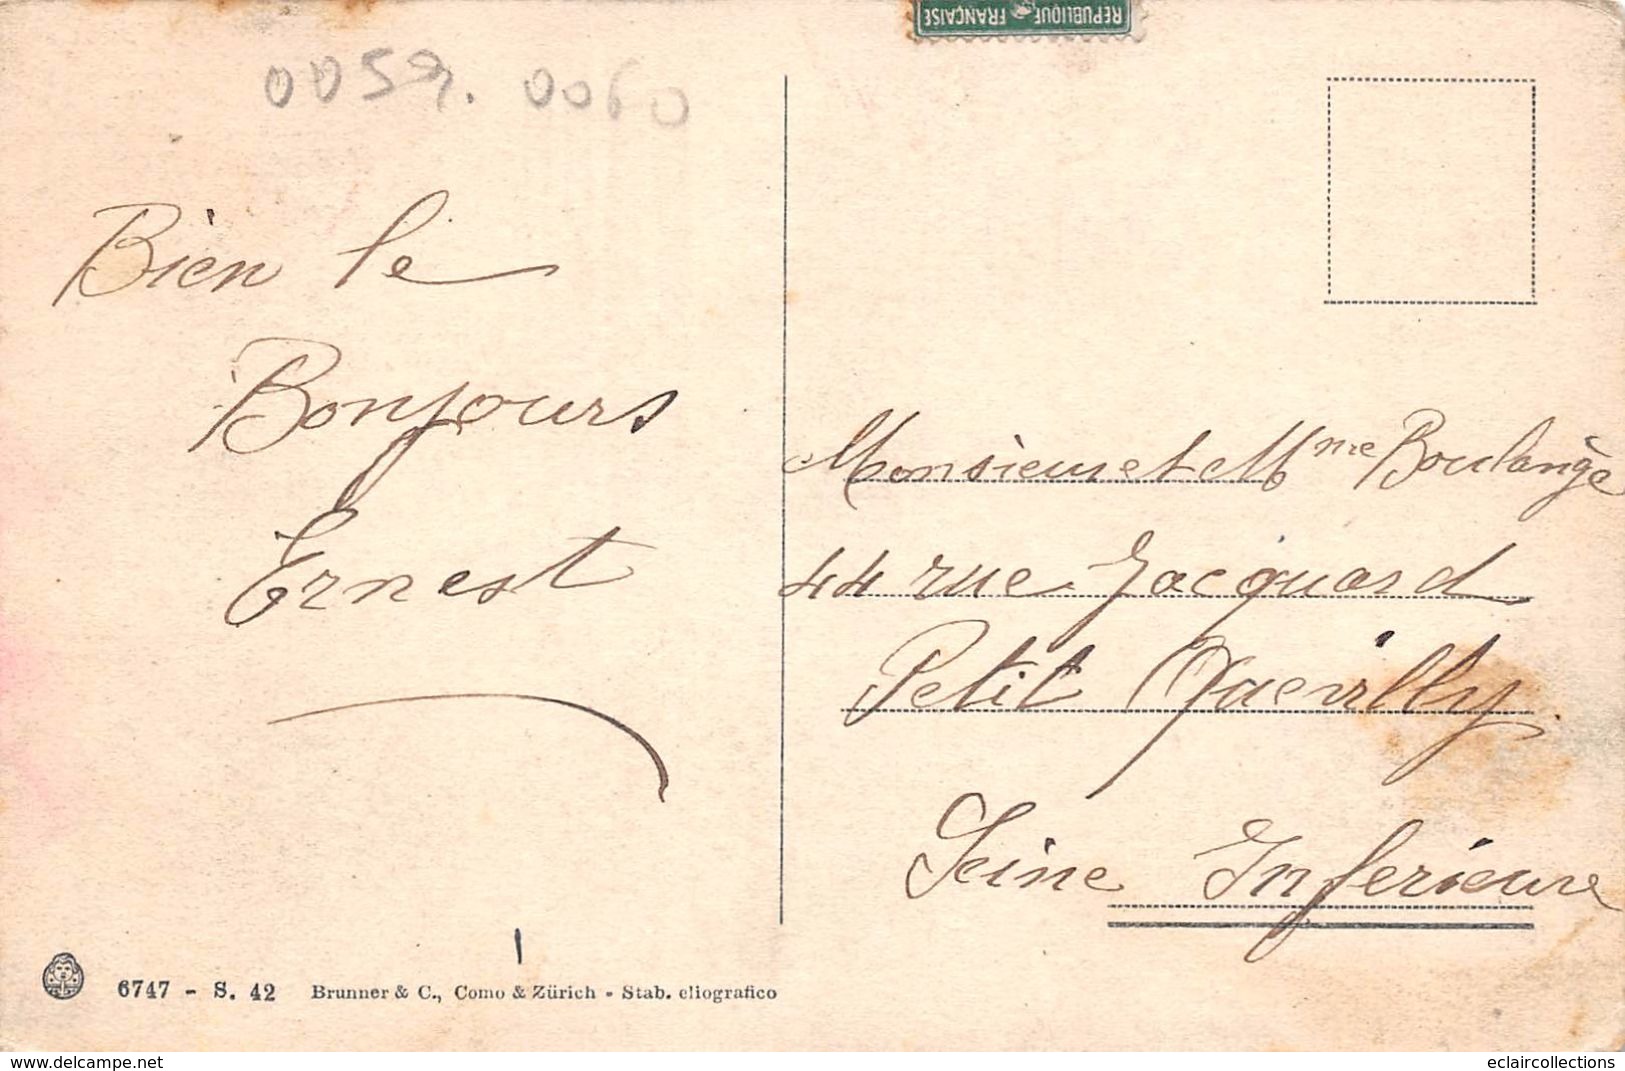 REPUBLIQUE FRANÇAISE
0059. 0060
Bien le
Bonjours
Ernest
Monsieur et Mme Boulange
44 rue Jacquard
Petit Quevilly
Seine Inferieure
6747 - S. 42 Brunner & C., Como & Zürich - Stab. eliografico
delcampe.net
eclaircollections